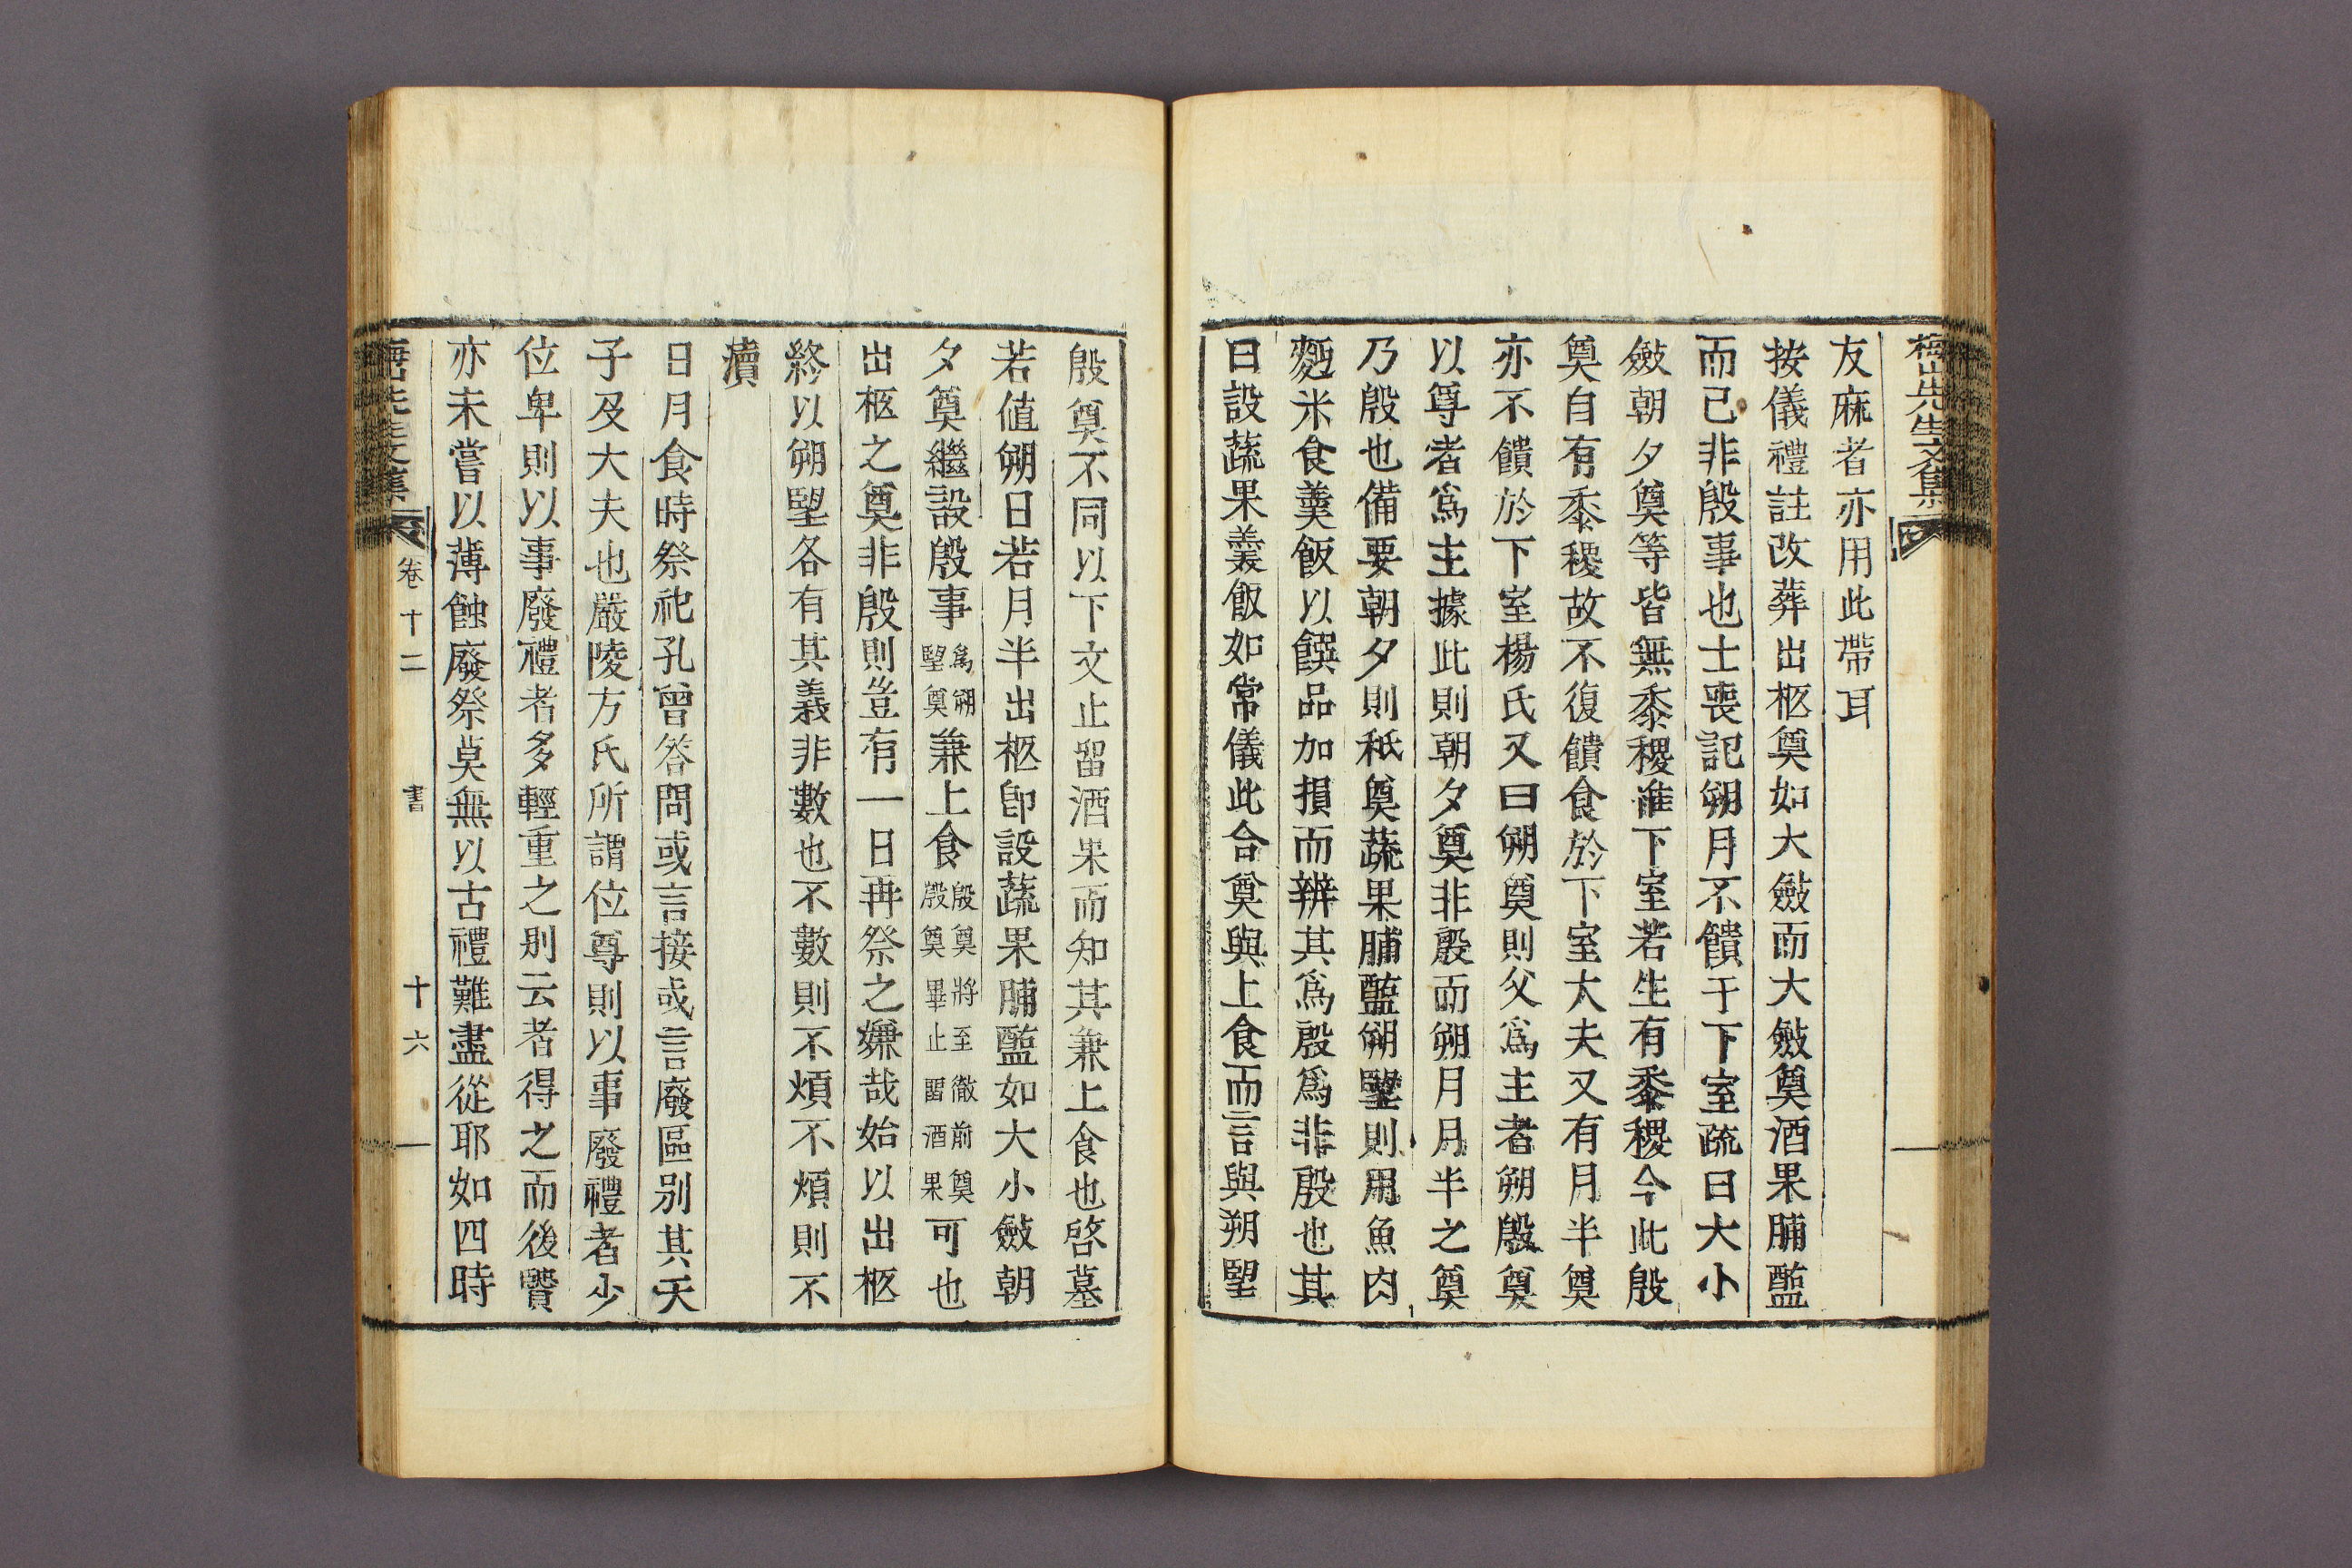 梅山先生文集
友麻者亦用此帶耳
按儀禮註改葬出柩奠如大斂而大斂奠酒果脯醢
而已非殷事也士喪記朔月不饋于下室疏曰大小
斂朝夕奠等皆無黍稷惟下室若生有黍稷今此殷
奠自有黍稷故不復饋食於下室大夫又有月半奠
亦不饋於下室楊氏又曰朔奠則父爲主者朔殷奠
以尊者爲主據此則朝夕奠非殷而朔月月半之奠
乃殷也備要朝夕則秪奠蔬果脯醢朔朢則用魚肉
麪米食羹飯以饌品加損而辨其爲殷爲非殷也其
曰設蔬果羹飯如常儀此合奠與上食而言與朔朢
殷奠不同以下文止留酒果而知其兼上食也啓墓
若値朔日若月半出柩卽設蔬果脯醢如大小斂朝
夕奠繼設殷事爲朔朢奠兼上食殷奠將至徹前奠殷奠畢止留酒果可也
出柩之奠非殷則豈有一日再祭之嫌哉始以出柩
終以朔朢各有其義非數也不數則不煩不煩則不
瀆
日月食時祭祀孔曾答問或言接或言廢區別其天
子及大夫也嚴陵方氏所謂位尊則以事廢禮者少
位卑則以事廢禮者多輕重之別云者得之而後賢
亦未嘗以薄蝕廢祭莫無以古禮難盡從耶如四時
梅山先生文集 卷十二 書 十六